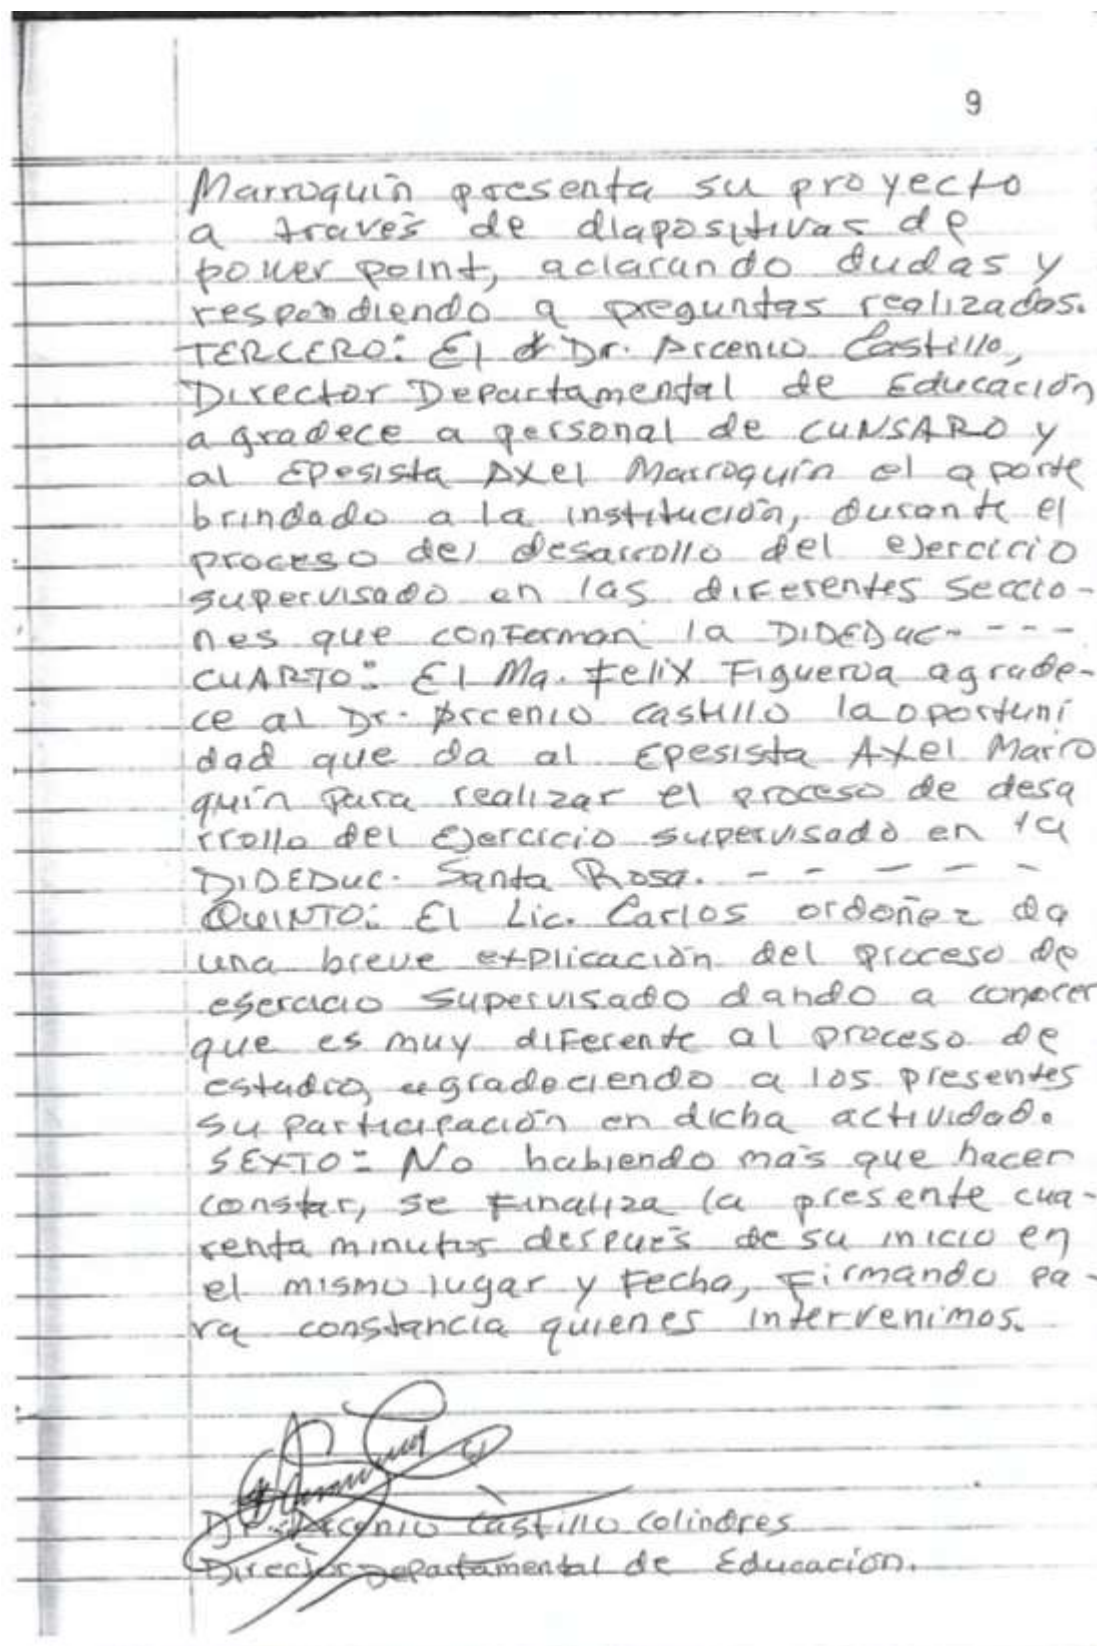 9
Marroquín presenta su proyecto
a través de diapositivas de
power point, aclarando dudas y
respondiendo a preguntas realizados.
TERCERO: El Dr. Arcenio Castillo,
Director Departamental de Educación
agradece a personal de CUNSARO y
al Epesista Axel Marroquín el aporte
brindado a la institución, durante el
proceso del desarrollo del ejercicio
supervisado en las diferentes seccio-
nes que conforman la DIDEDUC- - - -
CUARTO: El Ma. Felix Figueroa agrade-
ce al Dr. Arcenio Castillo la oportuni
dad que da al Epesista Axel Marro
quín para realizar el proceso de desa
rrollo del Ejercicio supervisado en la
DIDEDuc. Santa Rosa. - - - - -
QUINTO: El Lic. Carlos ordoñez da
una breve explicación del proceso de
esercicio supervisado dando a conocer
que es muy diferente al proceso de
estudio, agradeciendo a los presentes
su participación en dicha actividad.
SEXTO: No habiendo más que hacer
constar, se finaliza la presente cua-
renta minutos después de su inicio en
el mismo lugar y fecha, firmando pa-
ra constancia quienes intervenimos.
Dr. Arcenio Castillo Colindres
Director Departamental de Educación.